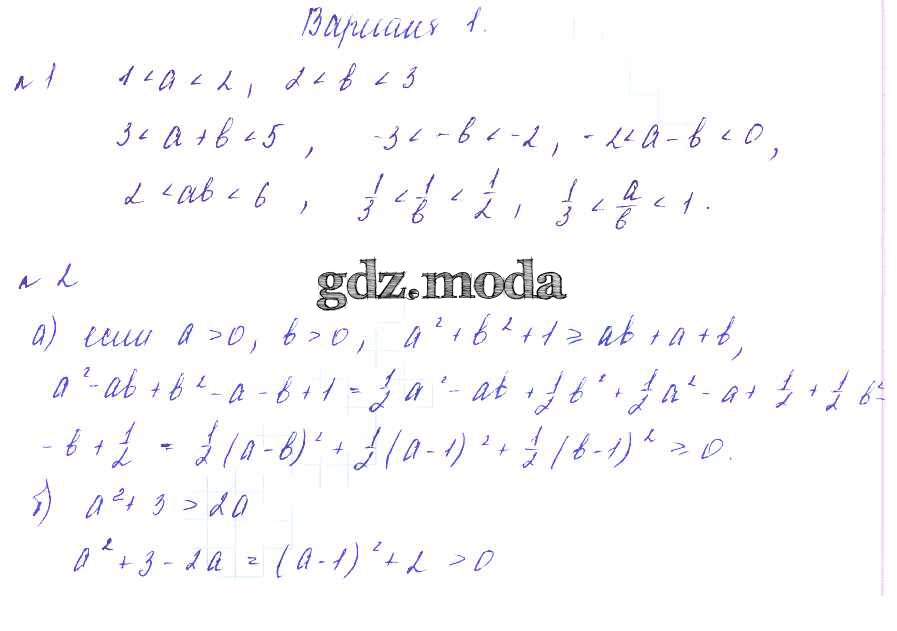 Вариант 1.
№ 1 1 < a < 2, 2 < b < 3
3 < a + b < 5, -3 < -b < -2, -2 < a - b < 0,
2 < ab < 6, 1/3 < 1/b < 1/2, 1/3 < a/b < 1.
№ 2
gdz.moda
а) если a > 0, b > 0, a² + b² + 1 ≥ ab + a + b,
a² - ab + b² - a - b + 1 = 1/2 a² - ab + 1/2 b² + 1/2 a² - a + 1/2 + 1/2 b² -
- b + 1/2 = 1/2 (a - b)² + 1/2 (a - 1)² + 1/2 (b - 1)² ≥ 0.
б) a² + 3 > 2a
a² + 3 - 2a = (a - 1)² + 2 > 0